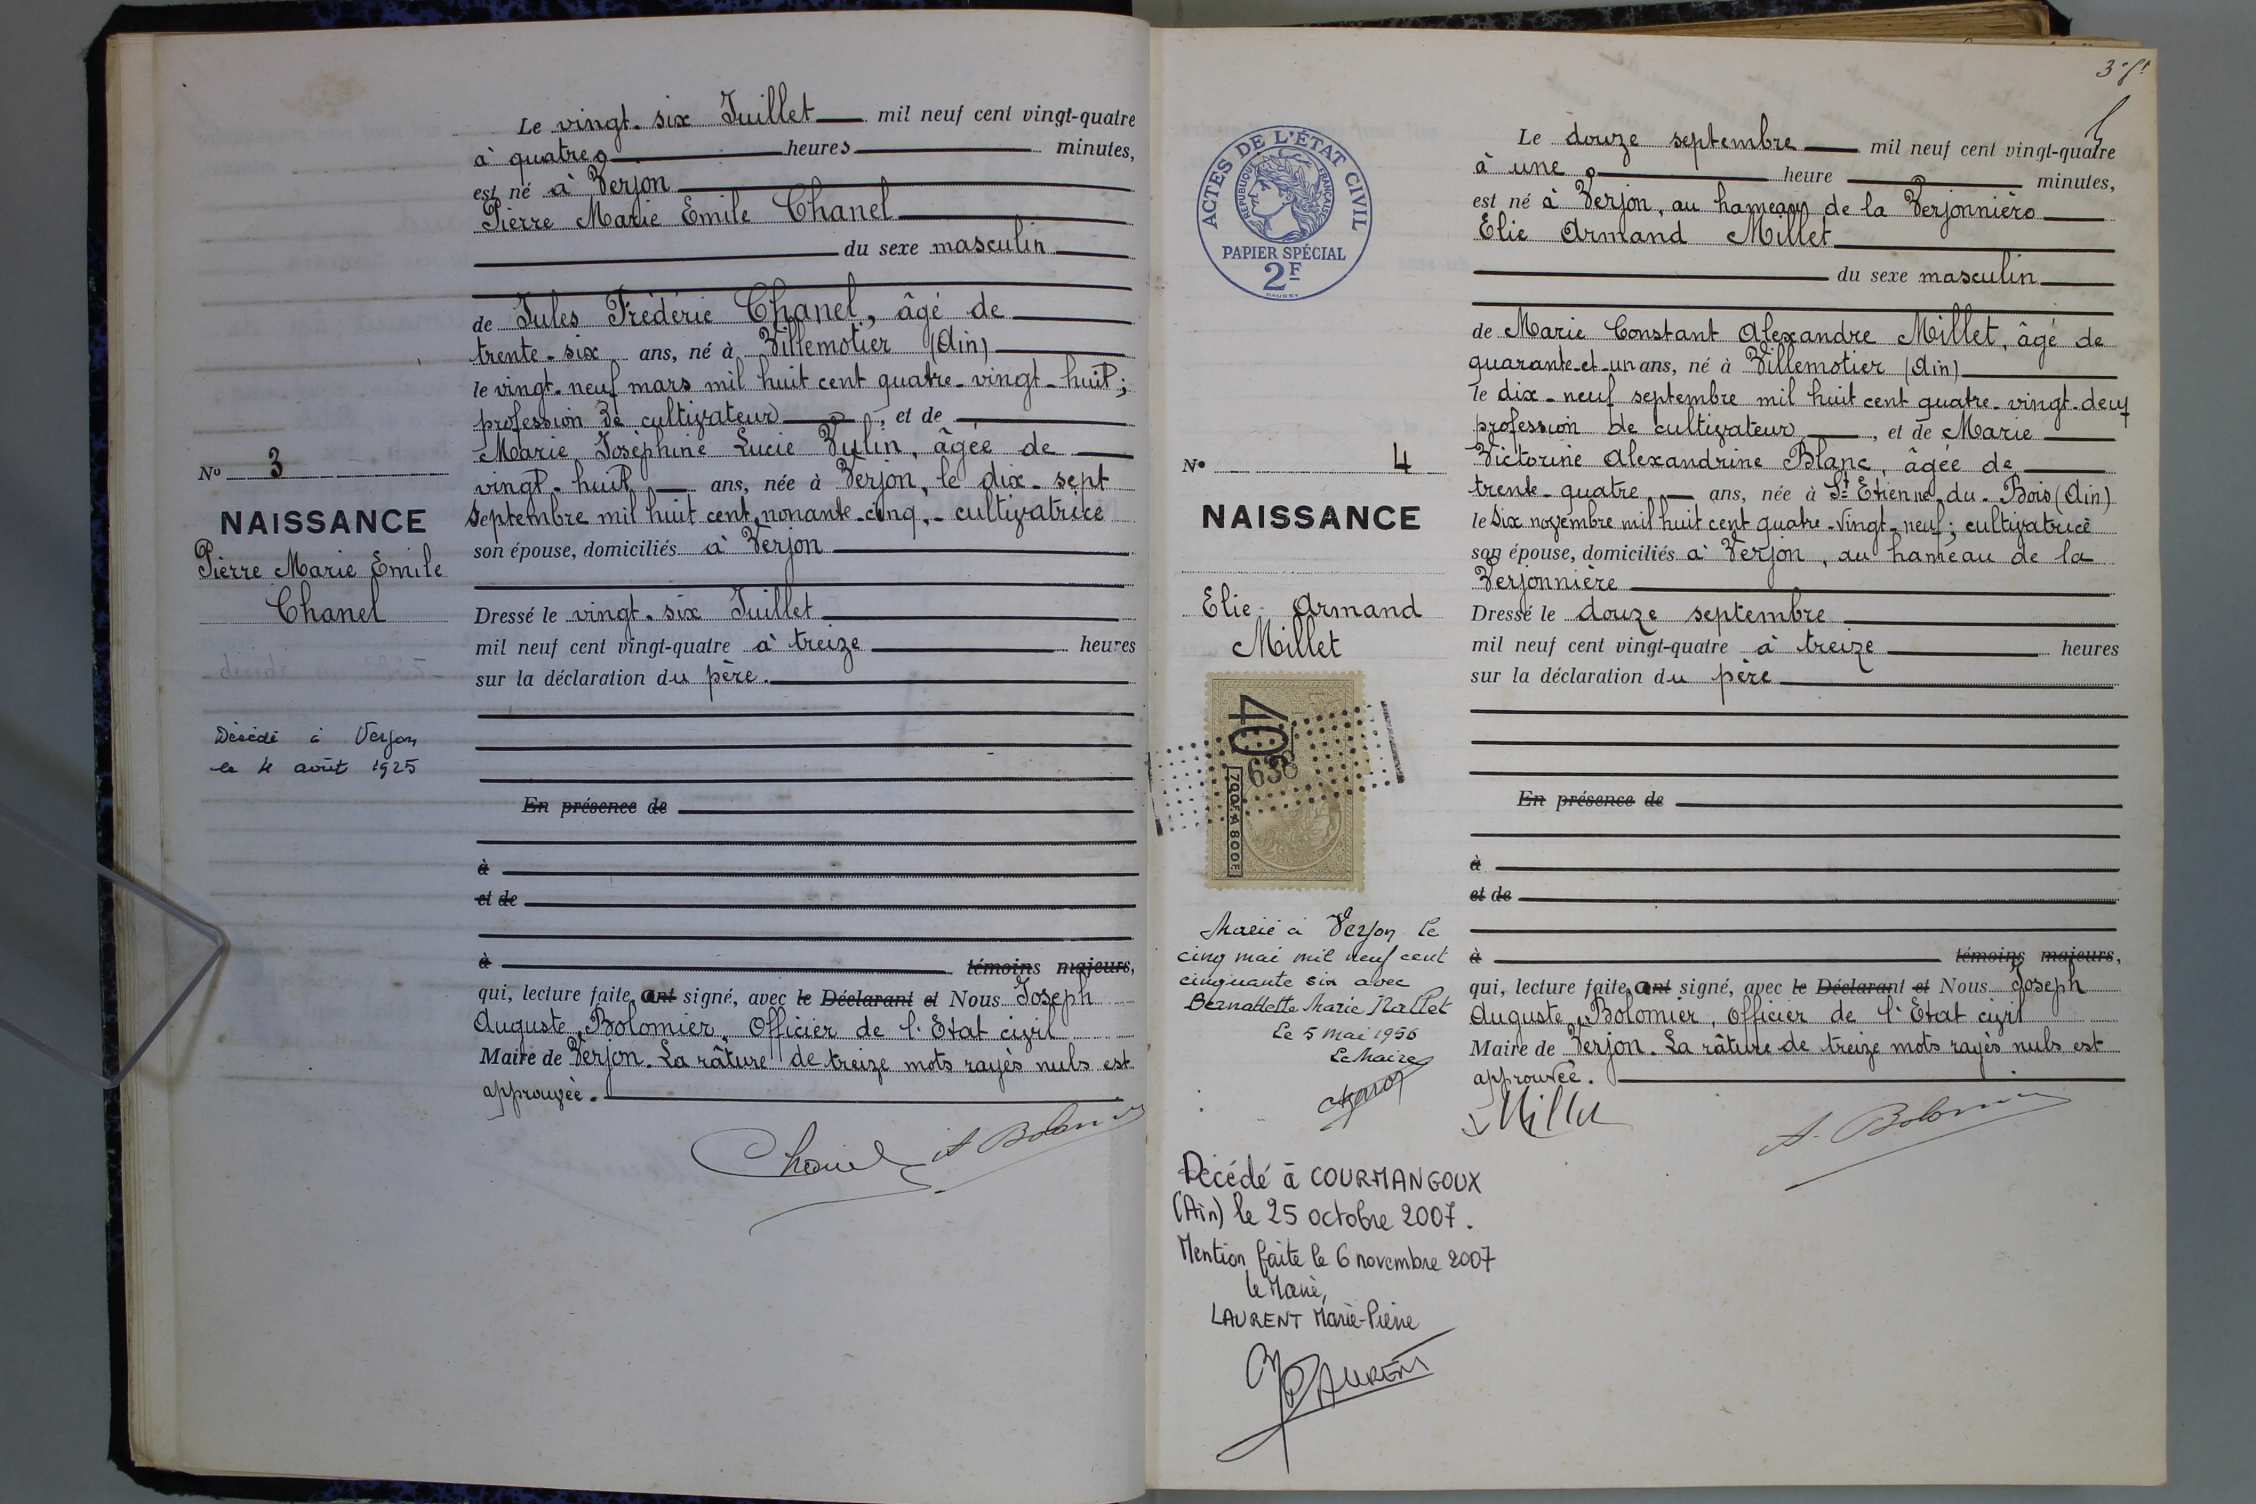 Le vingt-six Juillet mil neuf cent vingt-quatre
à quatre heures minutes,
est né à Verjon
Pierre Marie Emile Chanel
du sexe masculin
de Jules Frédéric Chanel, âgé de
trente-six ans, né à Villemotier (Ain)
le vingt-neuf mars mil huit cent quatre-vingt-huit;
profession de cultivateur, et de
Marie Joséphine Lucie Vulin, âgée de
vingt-huit ans, née à Verjon, le dix-sept
septembre mil huit cent nonante-cinq, - cultivatrice
son épouse, domiciliés à Verjon
Dressé le vingt-six Juillet
mil neuf cent vingt-quatre à treize heures
sur la déclaration du père.
En présence de
à
et de
à témoins majeurs,
qui, lecture faite, ant signé, avec le Déclarant et Nous Joseph
Auguste Bolomier, Officier de l'Etat civil
Maire de Verjon. La râture de treize mots rayés nuls est
approuvée.
Chanel A Bolomier
No 3
NAISSANCE
Pierre Marie Emile
Chanel
Décédé à Verjon
le 4 août 1925
ACTES DE L'ÉTAT CIVIL
RÉPUBLIQUE FRANÇAISE
PAPIER SPÉCIAL
2F
Le douze septembre mil neuf cent vingt-quatre
à une heure minutes,
est né à Verjon, au hameau de la Verjonnière
Elie Armand Millet
du sexe masculin
de Marie Constant Alexandre Millet, âgé de
quarante-et-un ans, né à Villemotier (Ain)
le dix-neuf septembre mil huit cent quatre-vingt-deux
profession de cultivateur, et de Marie
Victorine Alexandrine Blanc, âgée de
trente-quatre ans, née à St Etienne-du-Bois (Ain)
le six novembre mil huit cent quatre-vingt-neuf; cultivatrice
son épouse, domiciliés à Verjon, au hameau de la
Verjonnière
Dressé le douze septembre
mil neuf cent vingt-quatre à treize heures
sur la déclaration du père
En présence de
à
et de
à témoins majeurs,
qui, lecture faite, ant signé, avec le Déclarant et Nous Joseph
Auguste Bolomier, Officier de l'Etat civil
Maire de Verjon. La râture de treize mots rayés nuls est
approuvée.
Millet A. Bolomier
No 4
NAISSANCE
Elie Armand
Millet
40
638
700F A 800F
Marié à Verjon le
cinq mai mil neuf cent
cinquante six avec
Bernadette Marie
Le 5 mai 1956
Le Maire
Décédé à COURMANGOUX
(Ain) le 25 octobre 2007.
Mention faite le 6 novembre 2007
le Maire,
LAURENT Marie-Pierre
LAURENT